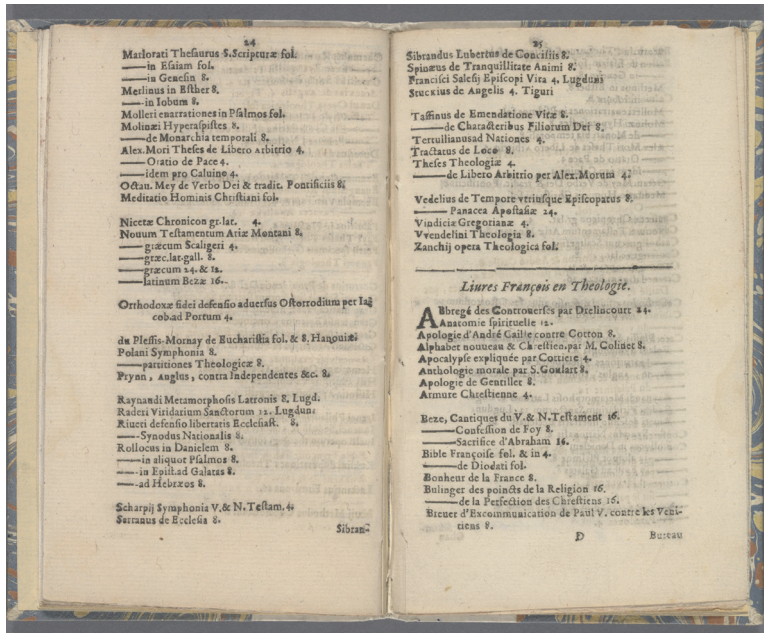 24
Marlorati Thesaurus S. Scripturæ fol.
——in Esaiam fol.
——in Genesin 8.
Merlinus in Esther 8.
——in Iobum 8.
Molleri enarrationes in Psalmos fol.
Molinæi Hyperaspistes 8.
——de Monarchia temporali 8.
Alex. Mori Theses de Libero Arbitrio 4.
——Oratio de Pace 4.
——idem pro Caluino 4.
Octau. Mey de Verbo Dei & tradit. Pontificiis 8.
Meditatio Hominis Christiani fol.
Nicetæ Chronicon gr. lat. 4.
Nouum Testamentum Ariæ Montani 8.
——græcum Scaligeri 4.
——græc. lat. gall. 8.
——græcum 24. & 12.
——latinum Bezæ 16.
Orthodoxæ fidei defensio aduersus Ostorrodium per Ia-
cobad Portum 4.
du Plessis-Mornay de Eucharistia fol. & 8. Hanouiæ
Polani Symphonia 8.
——partitiones Theologicæ 8.
Prynn, Anglus, contra Independentes &c. 8.
Raynandi Metamorphosis Latronis 8. Lugd.
Raderi Viridarium Sanctorum 12. Lugduni
Riueti defensio libertatis Ecclesiast. 8.
——Synodus Nationalis 8.
Rollocus in Danielem 8.
——in aliquot Psalmos 8.
——in Epist. ad Galatas 8.
——ad Hebræos 8.
Scharpij Symphonia V. & N. Testam. 4.
Serranus de Ecclesia 8.
Sibran-
25
Sibrandus Lubertus de Conciliis 8.
Spinæus de Tranquillitate Animi 8.
Francisci Salesij Episcopi Vita 4. Lugduni
Stucxius de Angelis 4. Tiguri
Taffinus de Emendatione Vitæ 8.
——de Characteribus Filiorum Dei 8.
Tertullianus ad Nationes 4.
Tractatus de Loco 8.
Theses Theologiæ 4.
——de Libero Arbitrio per Alex. Morum 4.
Vedelius de Tempore vtriusque Episcopatus 8.
—— Panacea Apostasiæ 24.
Vindiciæ Gregorianæ 4.
Vvendelini Theologia 8.
Zanchij opera Theologica fol.
Liures François en Theologie.
ABbregé des Controuerses par Drelincourt 24.
Anatomie spirituelle 12.
Apologie d'André Caille contre Cotton 8.
Alphabet nouueau & Chrestien. par M. Colinet 8.
Apocalypse expliquée par Cottiere 4.
Anthologie morale par S. Goulart 8.
Apologie de Gentillet 8.
Armure Chrestienne 4.
Beze, Cantiques du V. & N. Testament 16.
——Confession de Foy 8.
——Sacrifice d'Abraham 16.
Bible Françoise fol. & in 4.
——de Diodati fol.
Bonheur de la France 8.
Bulinger des poincts de la Religion 16.
——de la Perfection des Chrestiens 16.
Breuer d'Excommunication de Paul V. contre les Veni-
tiens 8.
D Bureau